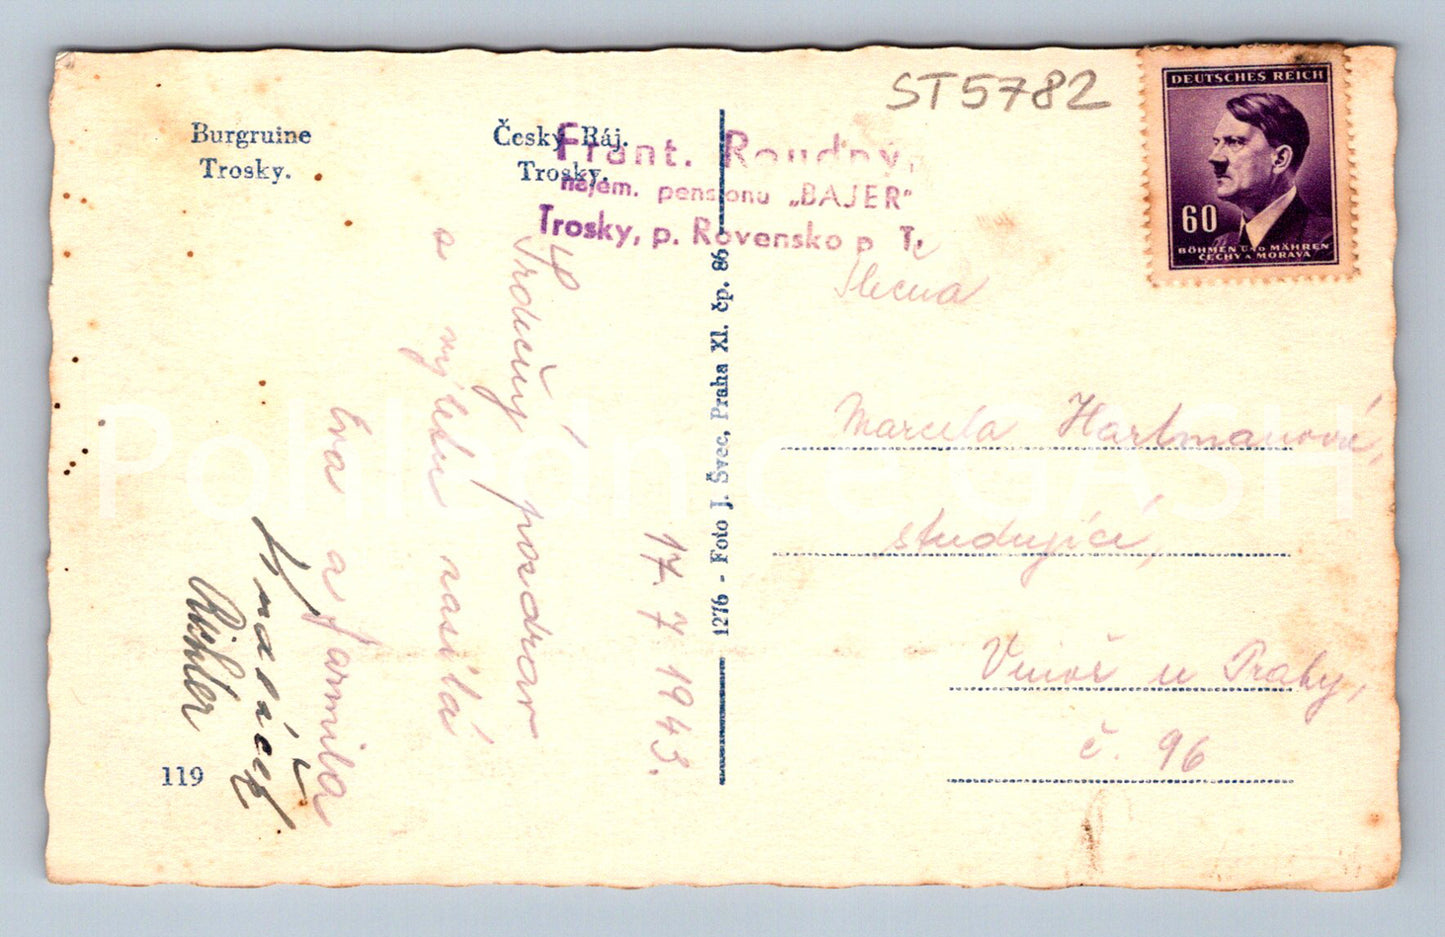 ST5782
DEUTSCHES REICH
60
BÖHMEN UND MÄHREN
ČECHY A MORAVA
Burgruine
Trosky.
Český Ráj.
Trosky.
Frant. Roudný,
nájem. pensionu „BAJER"
Trosky, p. Rovensko p T.
Slečna
Marcela Hartmanová,
studující,
Vinoř u Prahy,
č. 96
17. 7. 1943.
Srdečný pozdrav
a výletu zasílá
Eva a Jarmila
Richler
1276 - Foto J. Švec, Praha XI. čp. 86
119
Pohlednice GASH